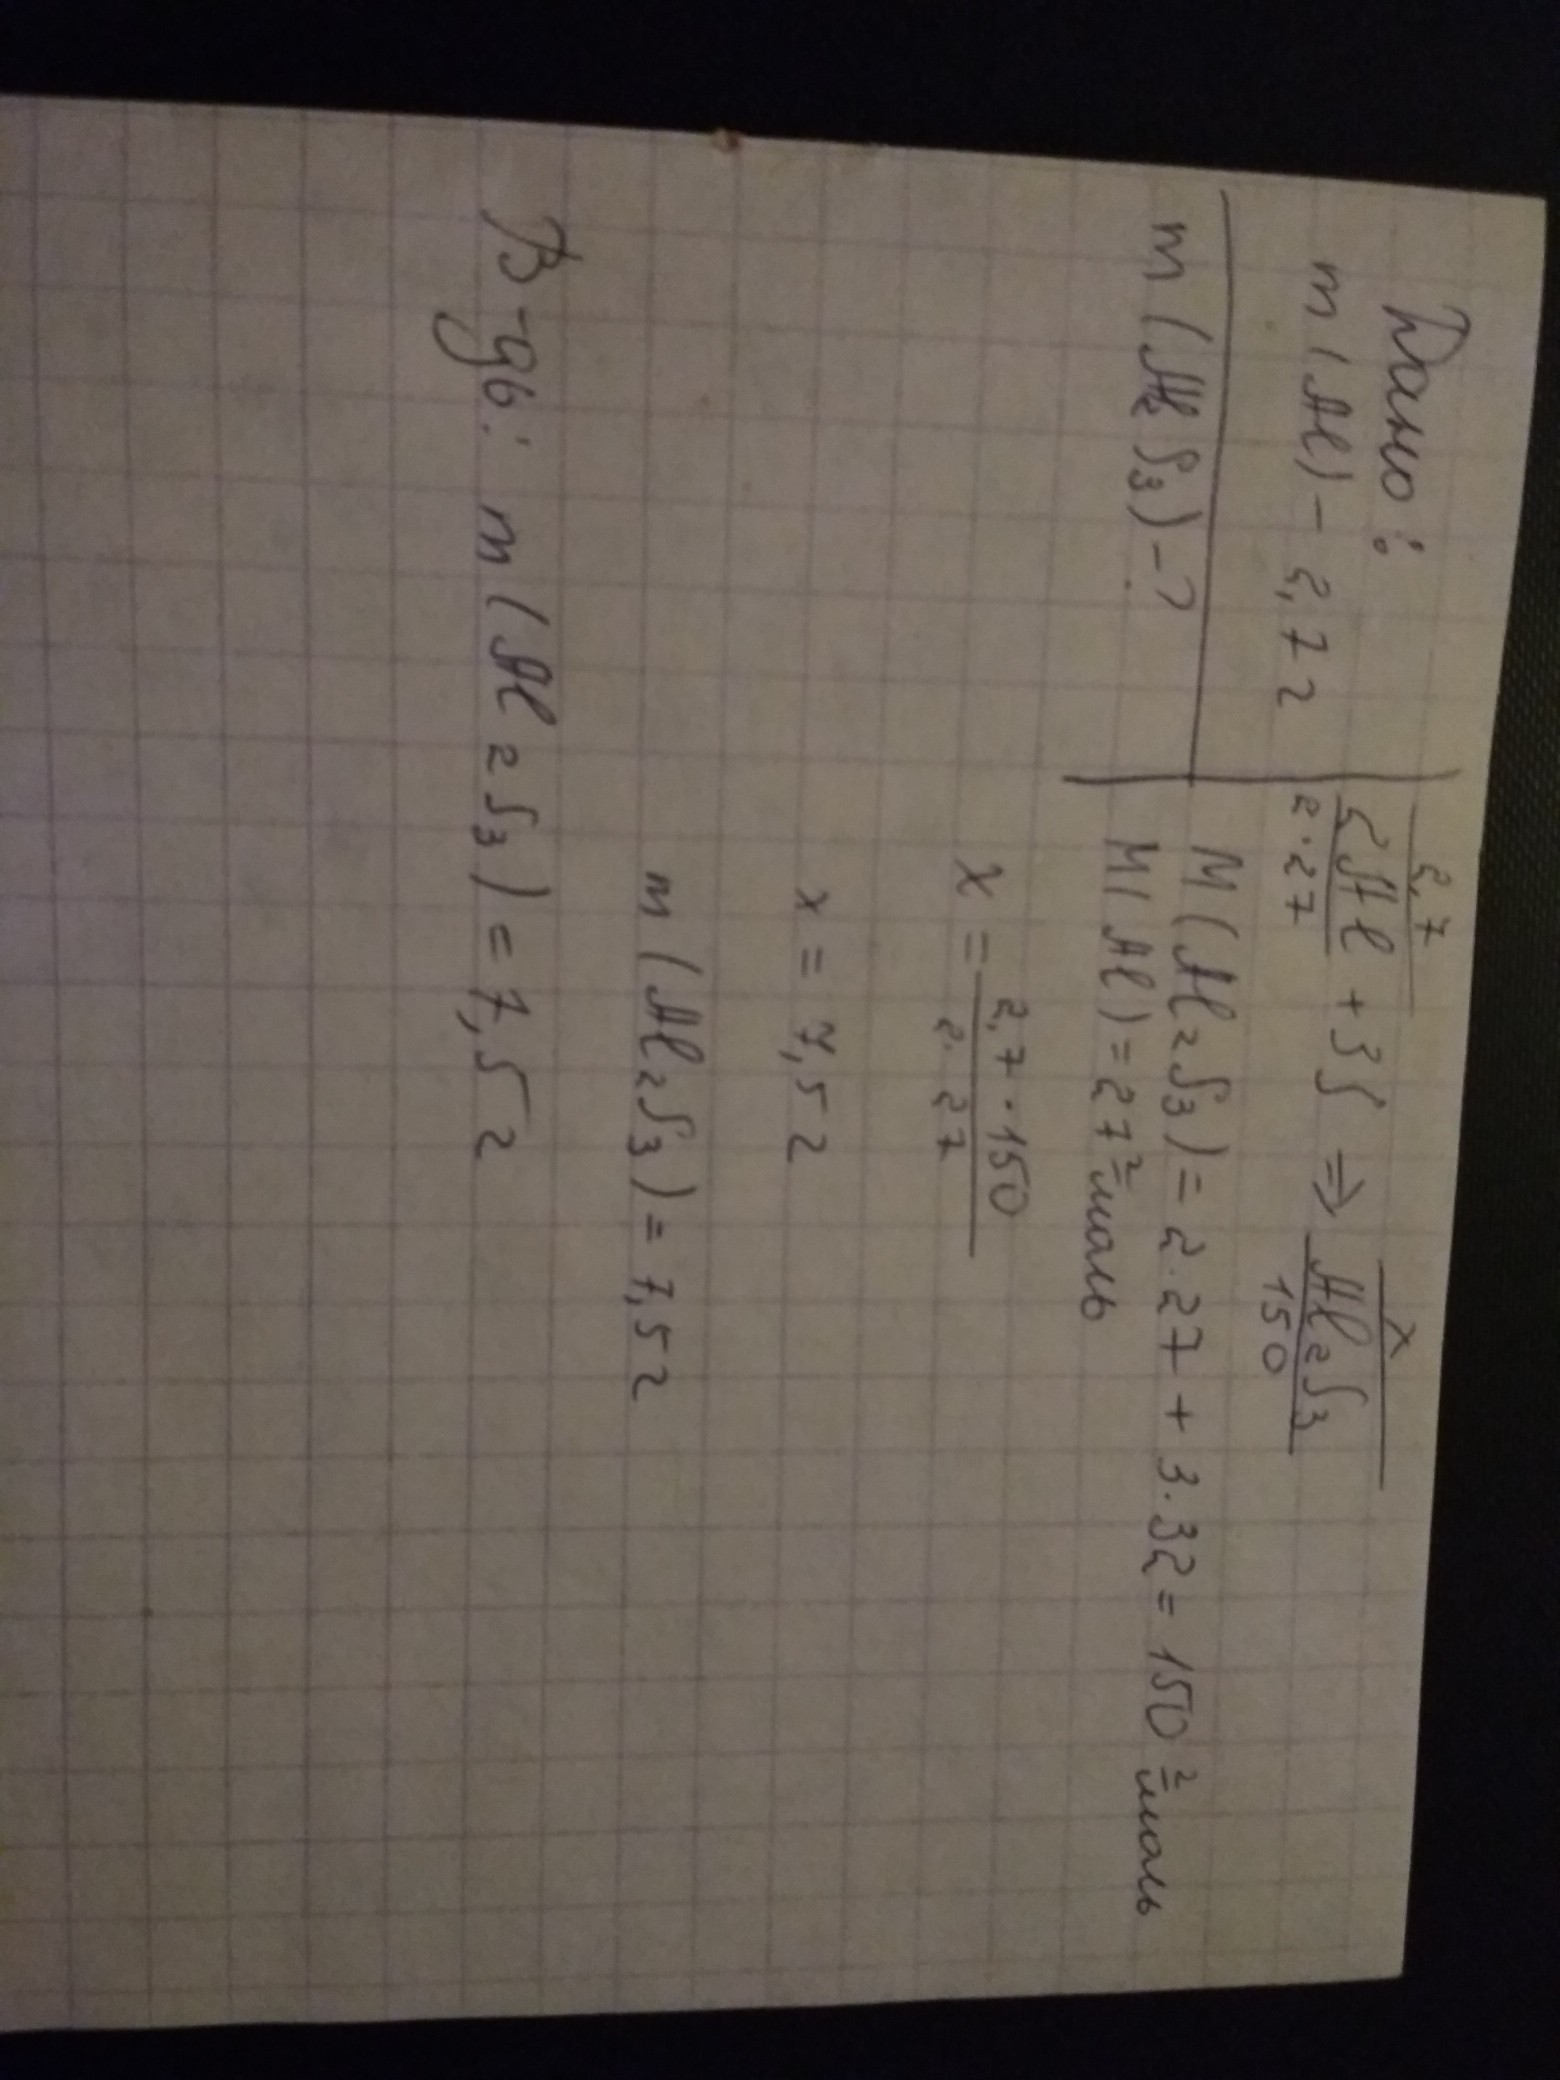 Дано:
m(Al) - 2,7 г
m(Al2S3) - ?
2,7 x
2Al + 3S => Al2S3
2·27 150
M(Al2S3) = 2·27 + 3·32 = 150 г/моль
M(Al) = 27 г/моль
x = 2,7·150 / 2·27
x = 7,5 г
m(Al2S3) = 7,5 г
В-дь: m(Al2S3) = 7,5 г